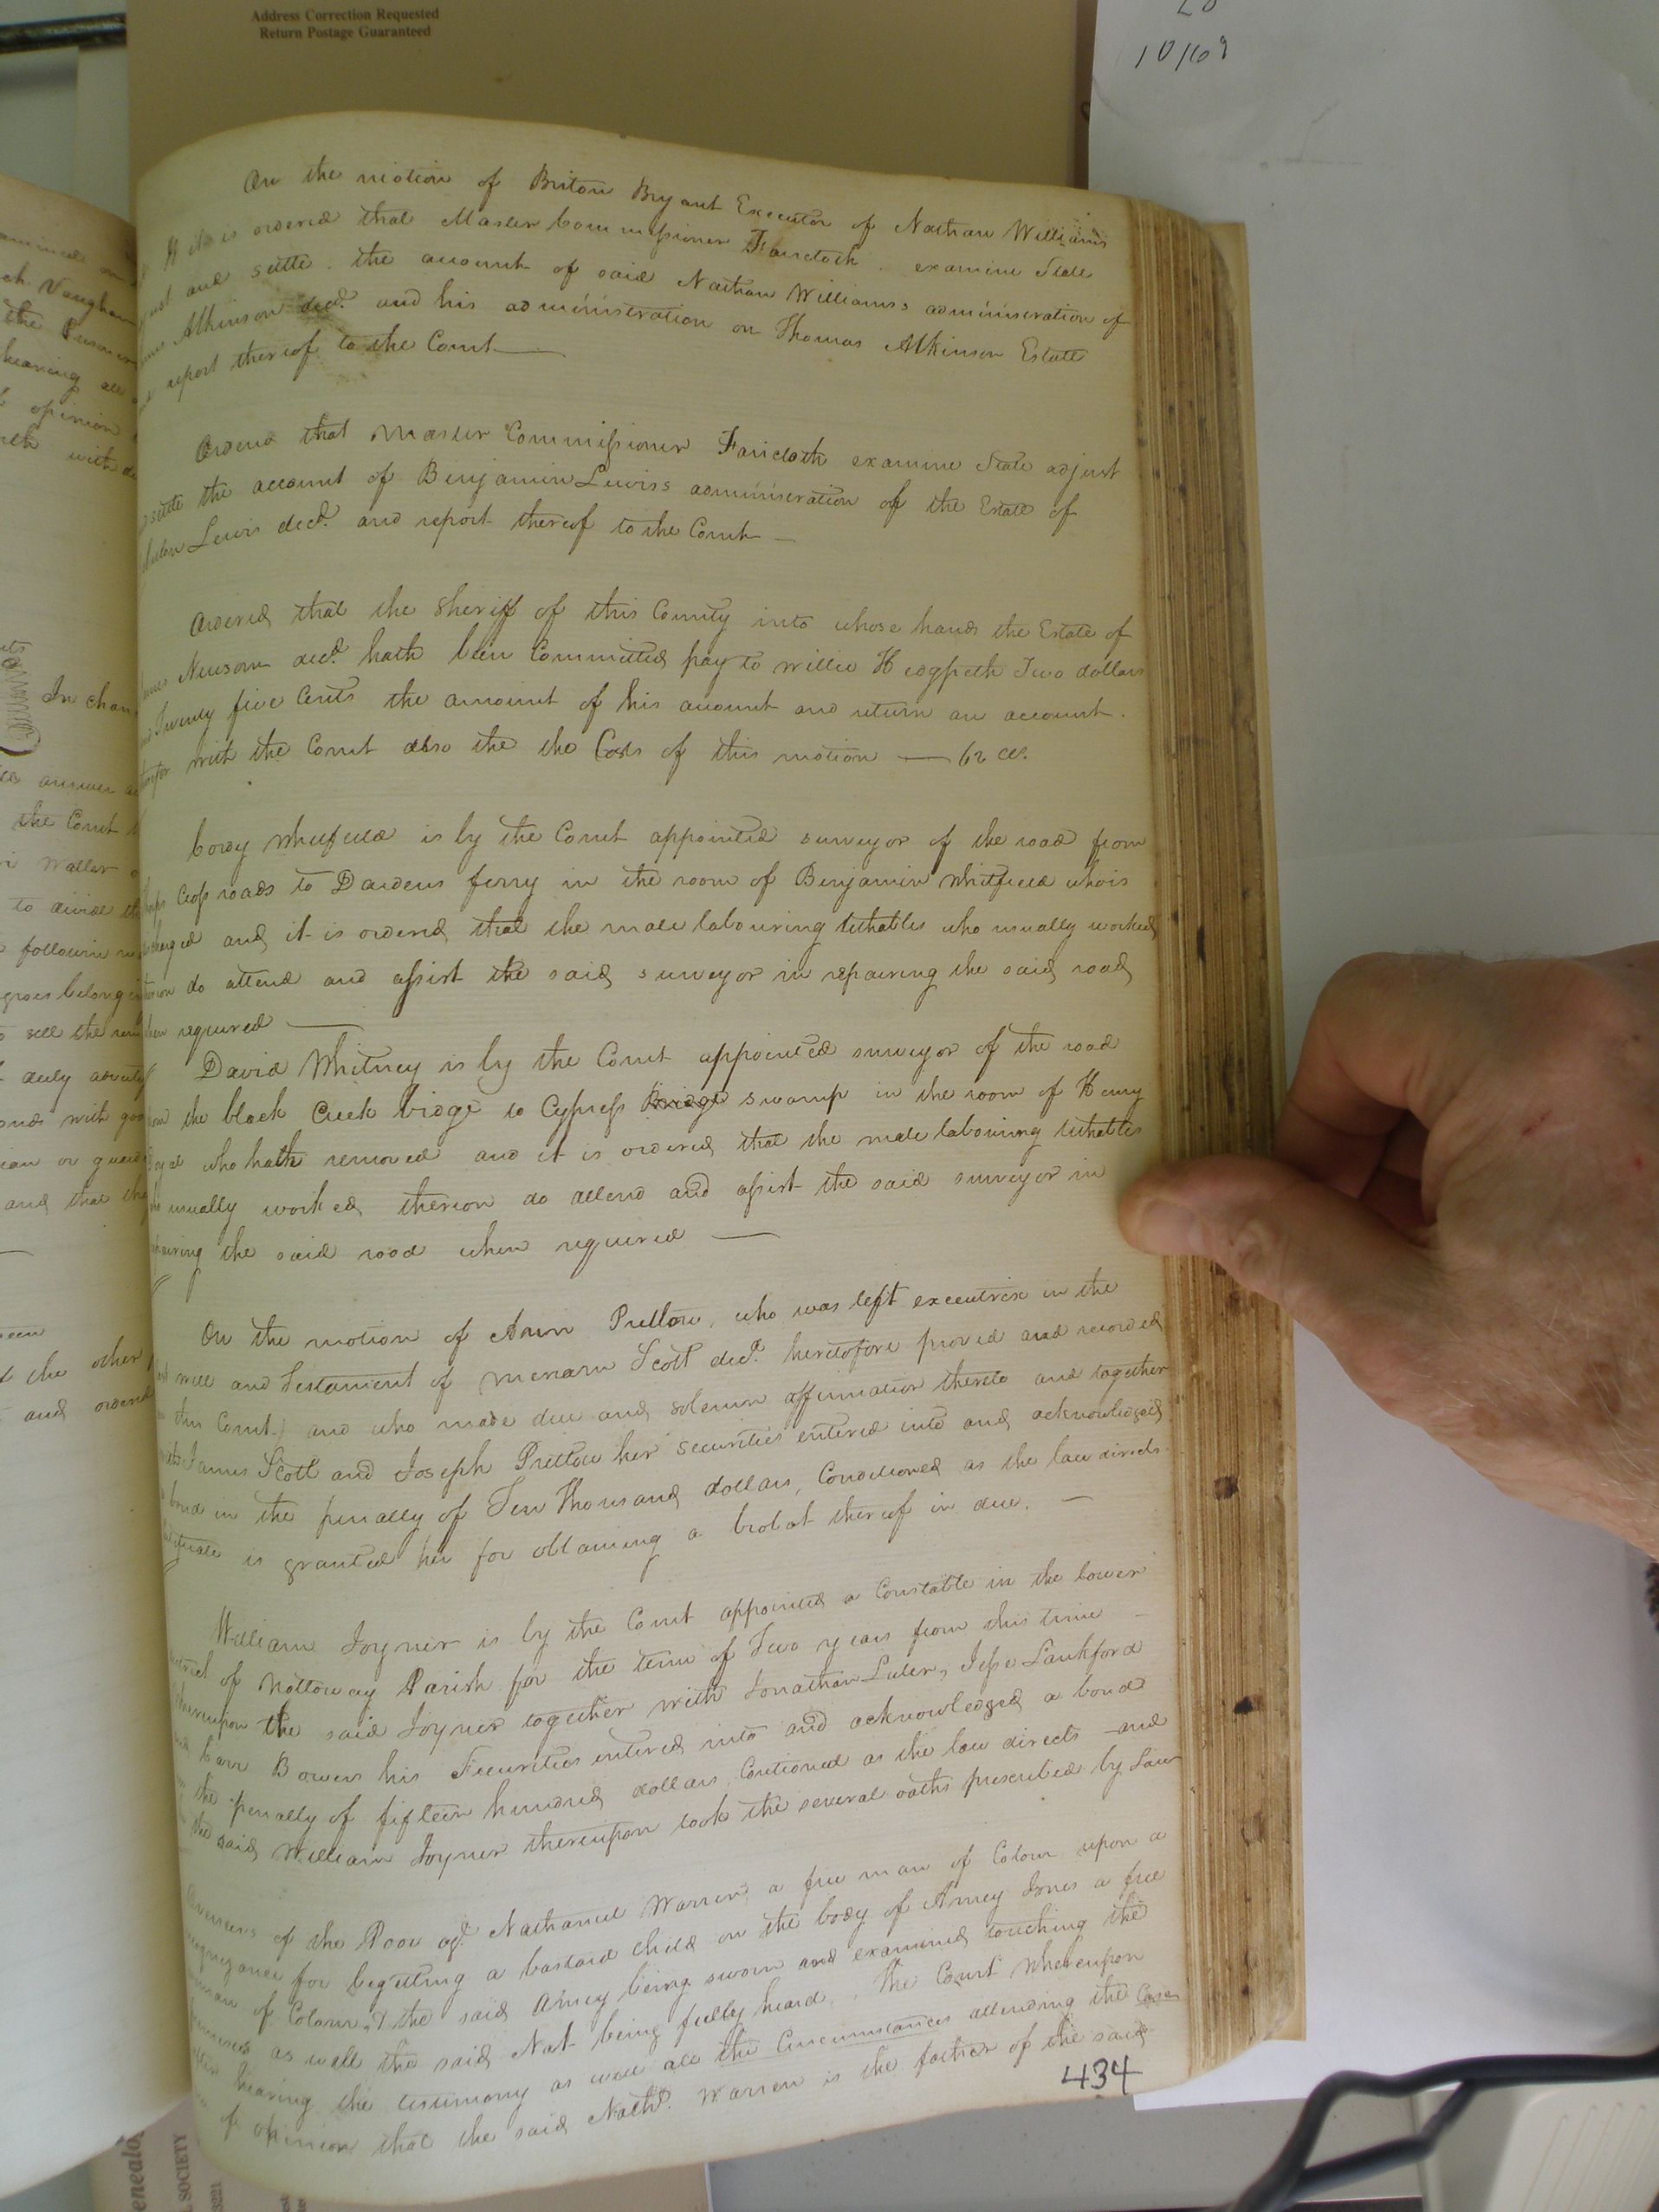 Address Correction Requested
Return Postage Guaranteed
10/69
On the motion of Briton Bryant Executor of Nathan Williams
it is ordered that Master Commissioner Faircloth examine State
and settle the account of said Nathan Williams's administration of
Atkinson decd. and his administration on Thomas Atkinson Estate
report thereof to the Court
Ordered that Master Commissioner Faircloth examine State adjust
settle the account of Benjamin Lewis's administration of the Estate of
Lewis decd. and report thereof to the Court
Ordered that the Sheriff of this County into whose hands the Estate of
Newsom decd. hath been Committed pay to Willie Hedgpeth Two dollars
Twenty five Cents the amount of his account and return an account
with the Court also the the Costs of this motion — 62 cts.
Cordy Whitfield is by the Court appointed surveyor of the road from
Cross roads to Dardens ferry in the room of Benjamin Whitfield who is
and it is ordered that the male labouring tithables who usually worked
do attend and assist the said surveyor in repairing the said road
required
David Whitney is by the Court appointed surveyor of the road
the black Creek bridge to Cypress Bridge swamp in the room of Henry
who hath removed and it is ordered that the male labouring tithables
usually worked thereon do attend and assist the said surveyor in
the said road when required
On the motion of Ann Pretlow, who was left executrix in the
will and Testament of Miriam Scott decd. heretofore proved and recorded
this Court) and who made due and solemn affirmation thereto and together
James Scott and Joseph Pretlow her securities entered into and acknowledged
bond in the penalty of Ten Thousand dollars, Conditioned as the law directs
is granted her for obtaining a probat thereof in due.
William Joyner is by the Court appointed a Constable in the lower
of Nottoway Parish for the term of Two years from this time
the said Joyner together with Jonathan Luter, Jesse Lankford
Carr Bowers his Securities entered into and acknowledged a bond
the penalty of fifteen hundred dollars, Contioned as the law directs and
the said William Joyner thereupon took the several oaths prescribed by Law
Overseers of the Poor agt. Nathaniel Warren, a free man of Colour upon a
for begetting a bastard child on the body of Amey Jones a free
of Colour, & the said Amey being sworn and examined touching the
as well the said Nat being fully heard, The Court whereupon
hearing the testimony as well all the Circumstances attending the Case
of opinion that the said Nathl. Warren is the father of the said
434
In chan
the Court
Waller
to divide
belong
sell the
duly
with
or
and that the
the other
and
Vaughan
the Prisoner
hearing all
opinion
with
SOCIETY